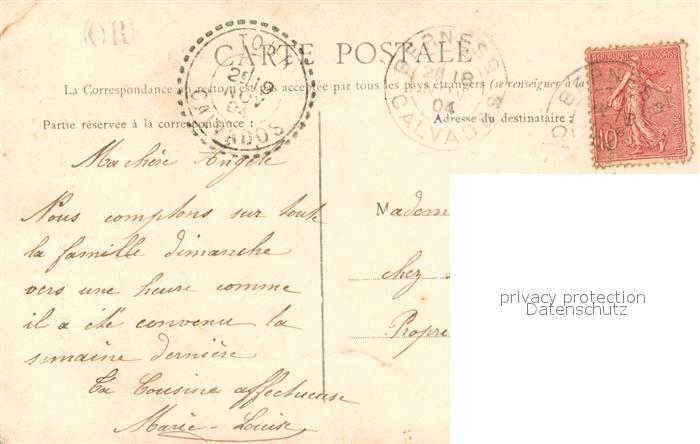 (OR)
CARTE POSTALE
La Correspondance au recto n'est pas acceptée par tous les pays étrangers (se renseigner à la
Partie réservée à la correspondance :
Adresse du destinataire :
CALVADOS
18
04
CALVADOS
REPUBLIQUE FRANÇAISE
POSTES
10c
Ma chère Angèle
Nous comptons sur toute
la famille dimanche
vers une heure comme
il a été convenu la
semaine dernière
Ta Cousine affectueuse
Marie-Louise
Madem
chez
Propri
privacy protection
Datenschutz